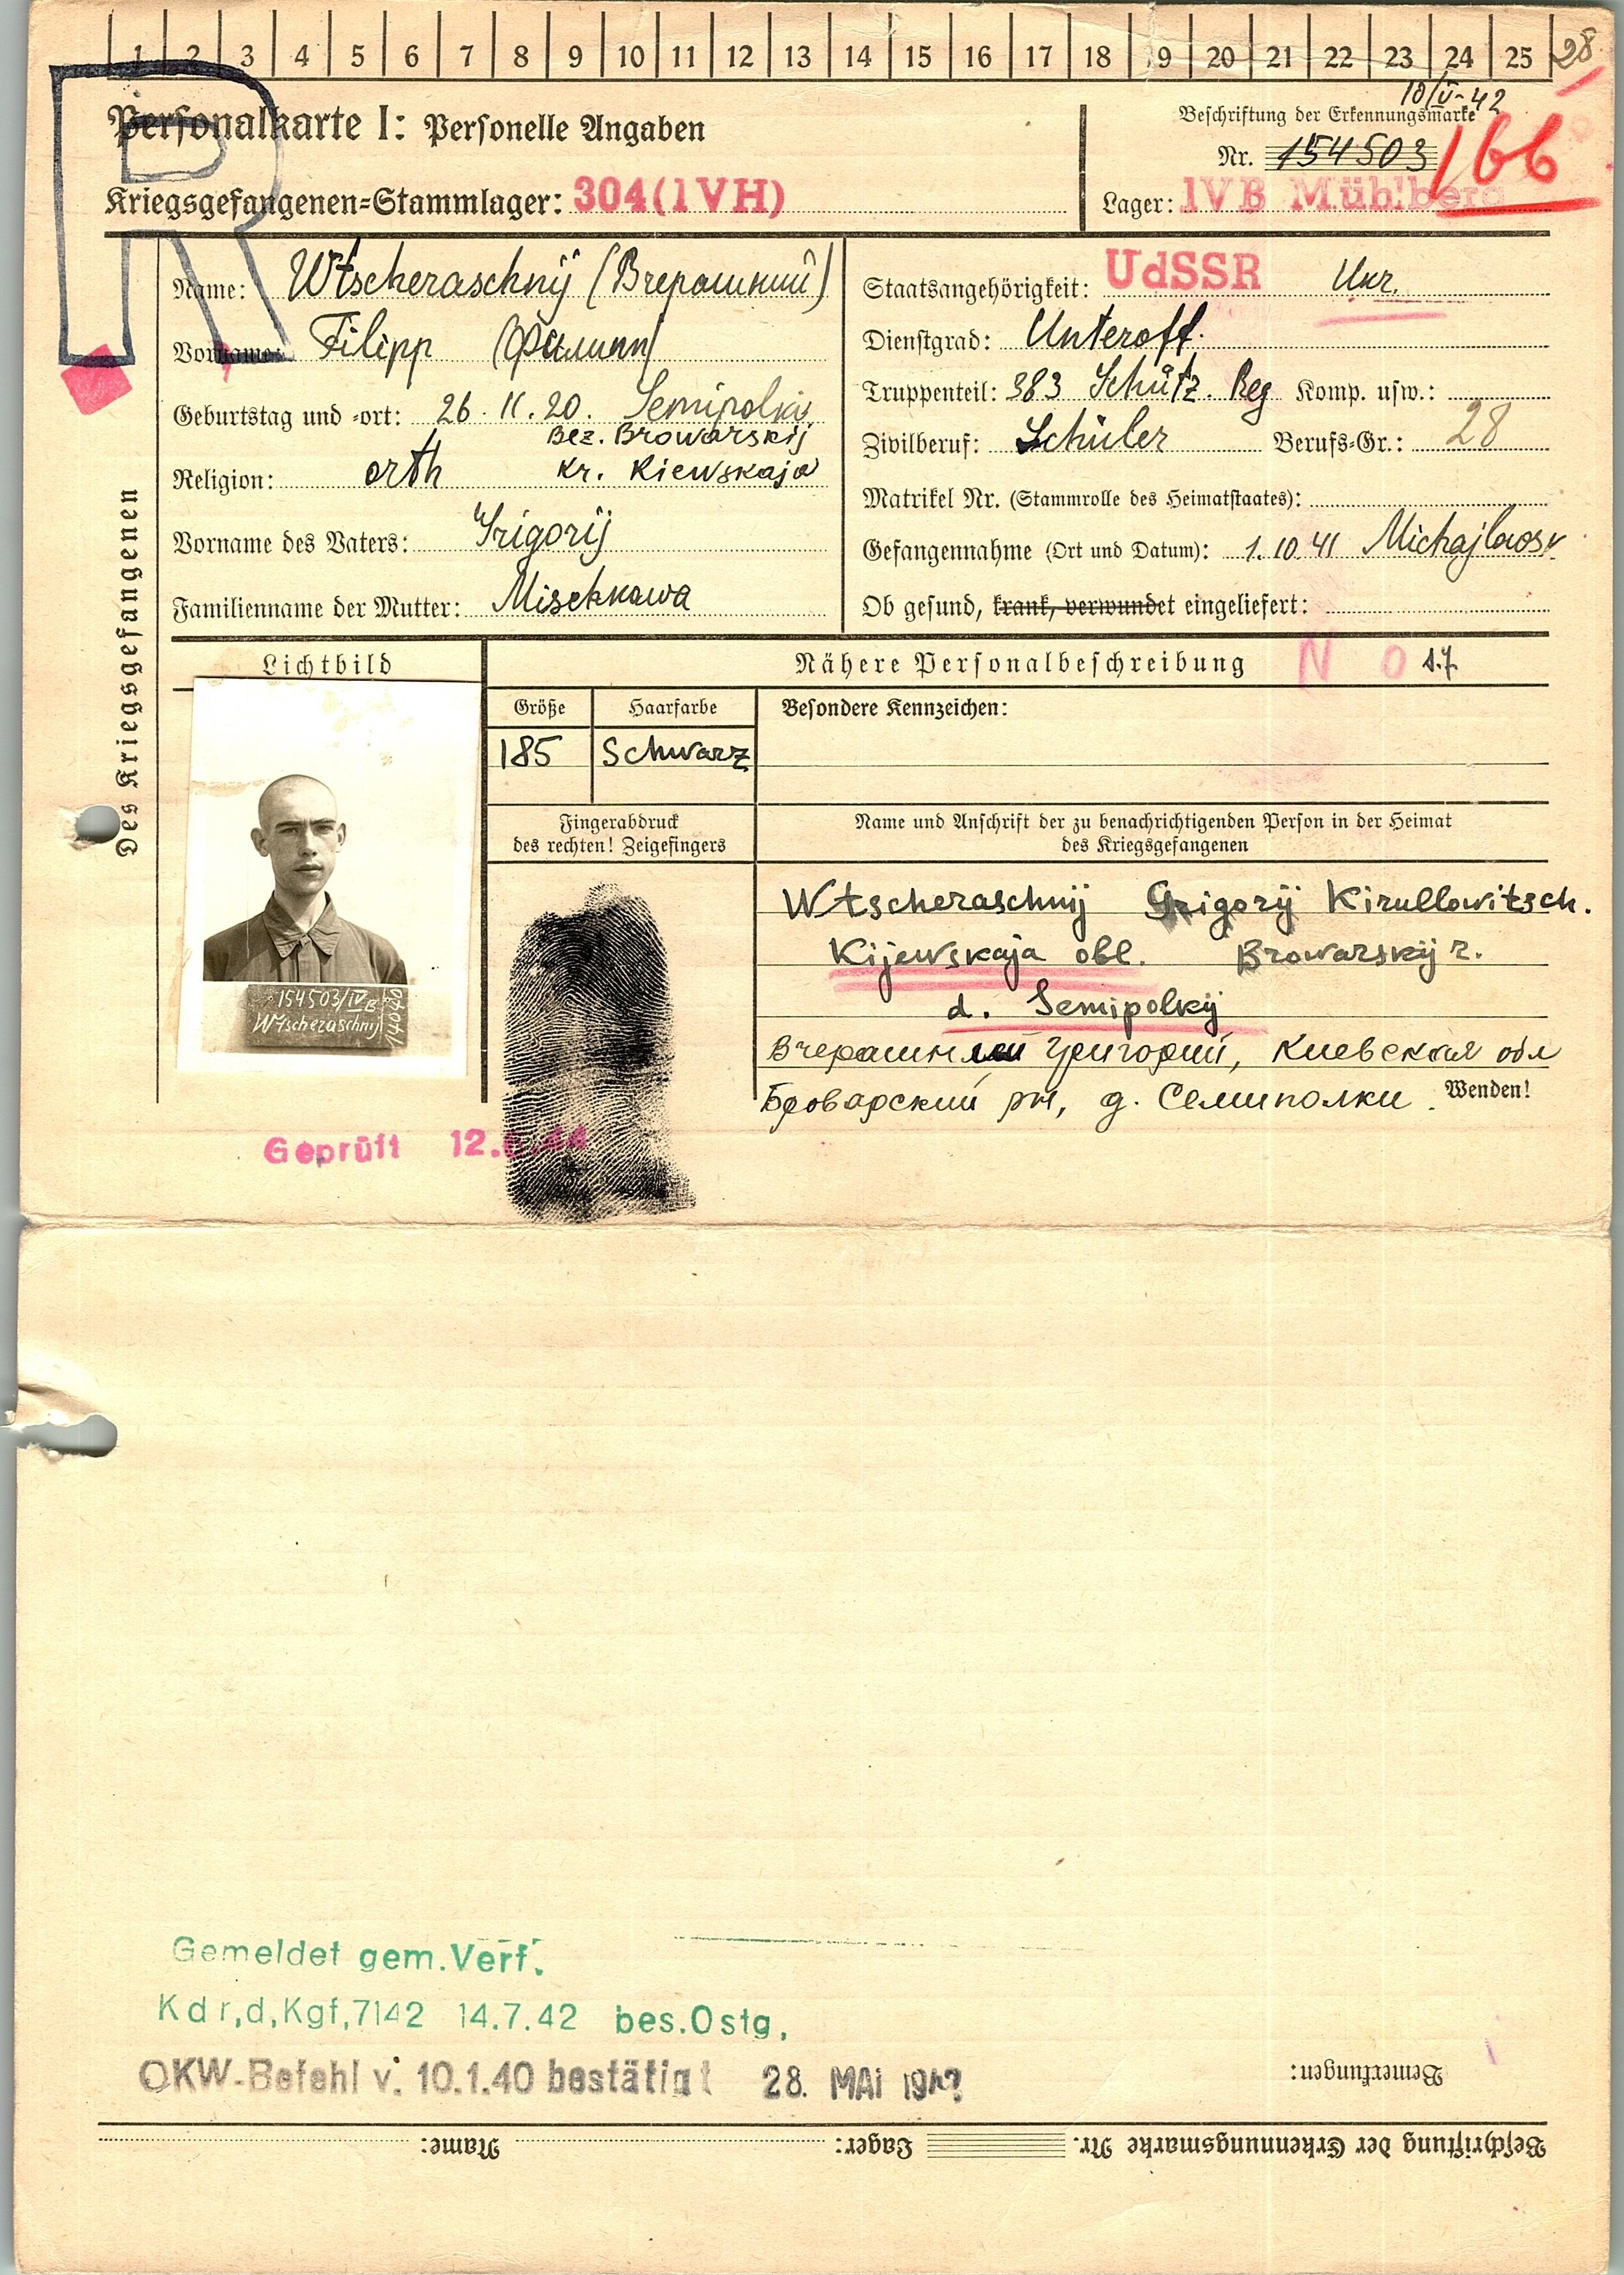 1 2 3 4 5 6 7 8 9 10 11 12 13 14 15 16 17 18 19 20 21 22 23 24 25 28
R
10/V-42
Personalkarte I: Personelle Angaben
Beschriftung der Erkennungsmarke
Nr. 154503
166
Kriegsgefangenen-Stammlager: 304(IVH)
Lager: IVB Mühlberg
Des Kriegsgefangenen
Name: Wtscheraschnij (Вчерашний)
Vorname: Filipp (Филипп)
Geburtstag und -ort: 26. 11. 20. Semipolkij
Bez. Browarskij
Religion: orth kr. Kiewskaja
Vorname des Vaters: Grigorij
Familienname der Mutter: Mischkowa
Staatsangehörigkeit: UdSSR Ukr.
Dienstgrad: Unteroff.
Truppenteil: 383 Schütz. Reg Komp. usw.:
Zivilberuf: Schüler Berufs-Gr.: 28
Matrikel Nr. (Stammrolle des Heimatstaates):
Gefangennahme (Ort und Datum): 1.10.41 Michajlowsk
Ob gesund, krank, verwundet eingeliefert:
Lichtbild
Nähere Personalbeschreibung
N 0 17
Größe Haarfarbe Besondere Kennzeichen:
185 Schwarz
Fingerabdruck
des rechten! Zeigefingers
Name und Anschrift der zu benachrichtigenden Person in der Heimat
des Kriegsgefangenen
Wtscheraschnij Grigorij Kirullowitsch.
Kijewskaja obl. Browarskij r.
d. Semipolkij
Вчерашний Григорий, Киевская обл
Броварский рн, д. Семиполки.
Wenden!
154503/IVB
Wtscheraschnij
Geprüft 12. 44
Gemeldet gem. Verf.
Kdr,d,Kgf,7142 14.7.42 bes.Ostg,
OKW-Befehl v. 10.1.40 bestätigt 28. MAI 194?
Bemerkungen:
Beschriftung der Erkennungsmarke Nr. Lager: Name: